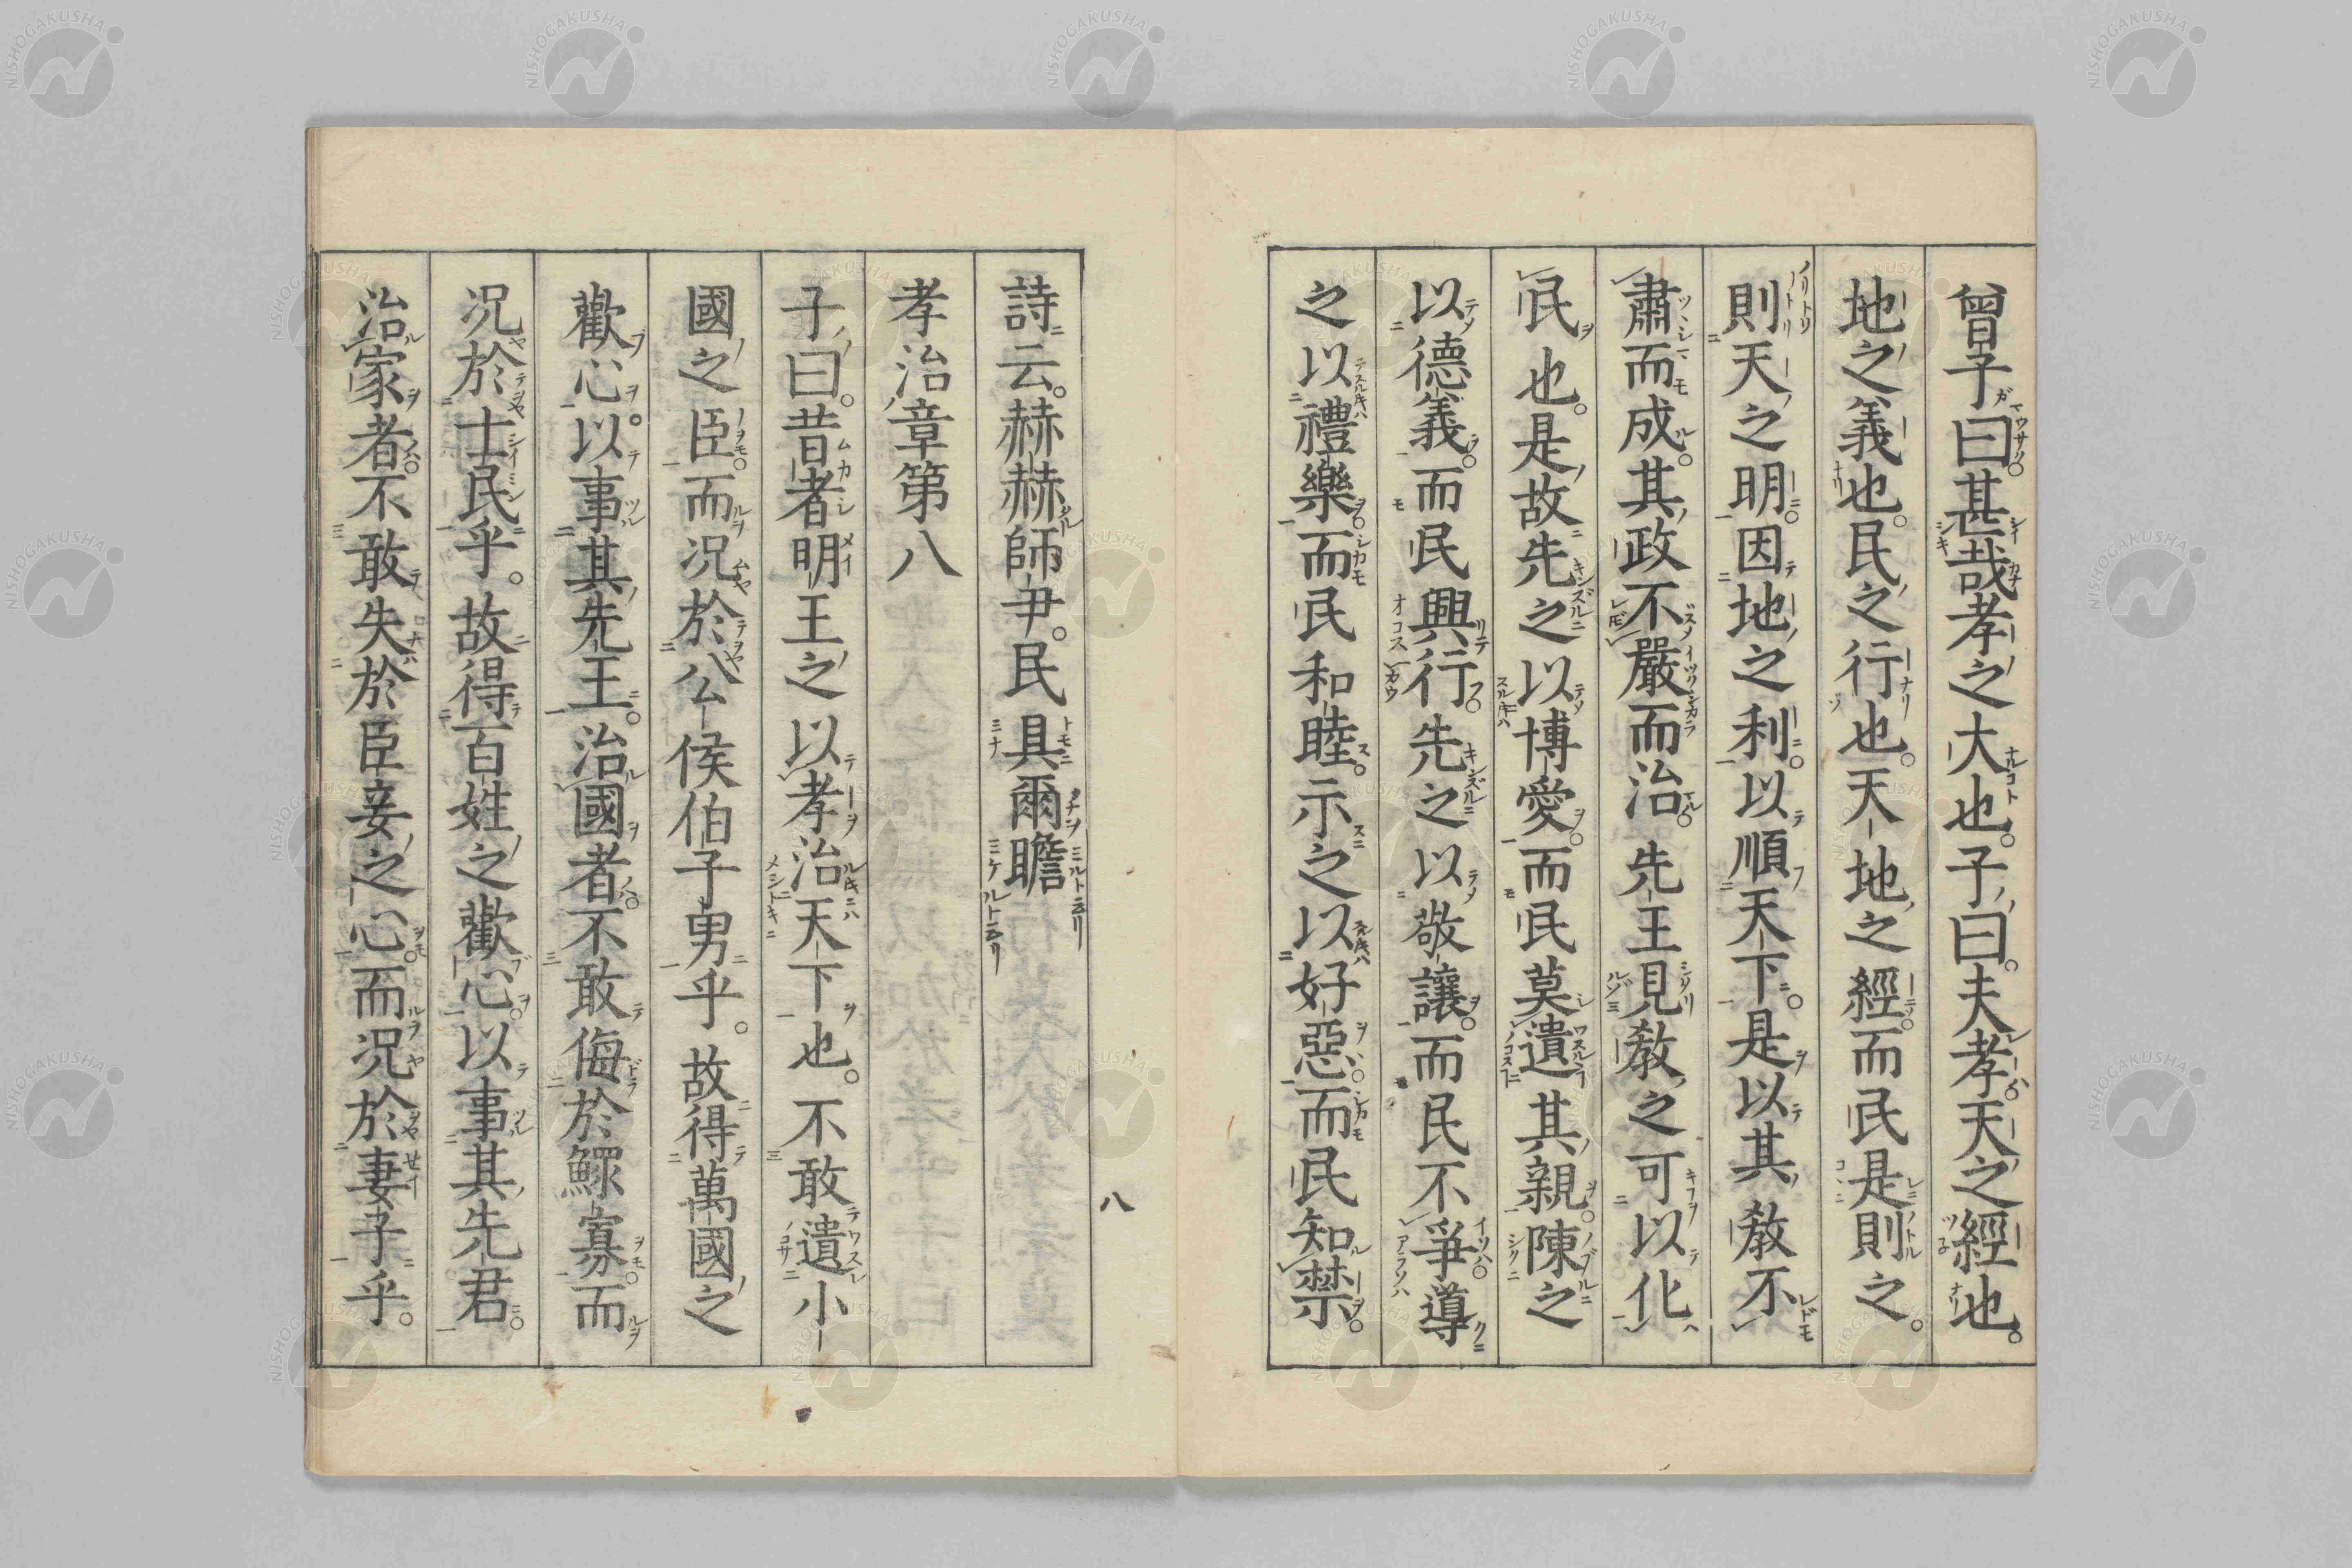 曾子曰甚哉孝之大也。子曰。夫孝天之經也。
地之義也。民之行也。天地之經。而民是則之。
則天之明。因地之利。以順天下。是以其教不
肅而成。其政不嚴而治。先王見教之可以化
民也。是故先之以博愛。而民莫遺其親。陳之
以德義。而民興行。先之以敬讓。而民不爭。導
之以禮樂。而民和睦。示之以好惡。而民知禁。
詩云。赫赫師尹。民具爾瞻
孝治章第八
子曰。昔者明王之以孝治天下也。不敢遺小
國之臣。而況於公侯伯子男乎。故得萬國之
歡心。以事其先王。治國者。不敢侮於鰥寡。而
況於士民乎。故得百姓之歡心。以事其先君。
治家者。不敢失於臣妾之心。而況於妻子乎。
八
NISHOGAKUSHA